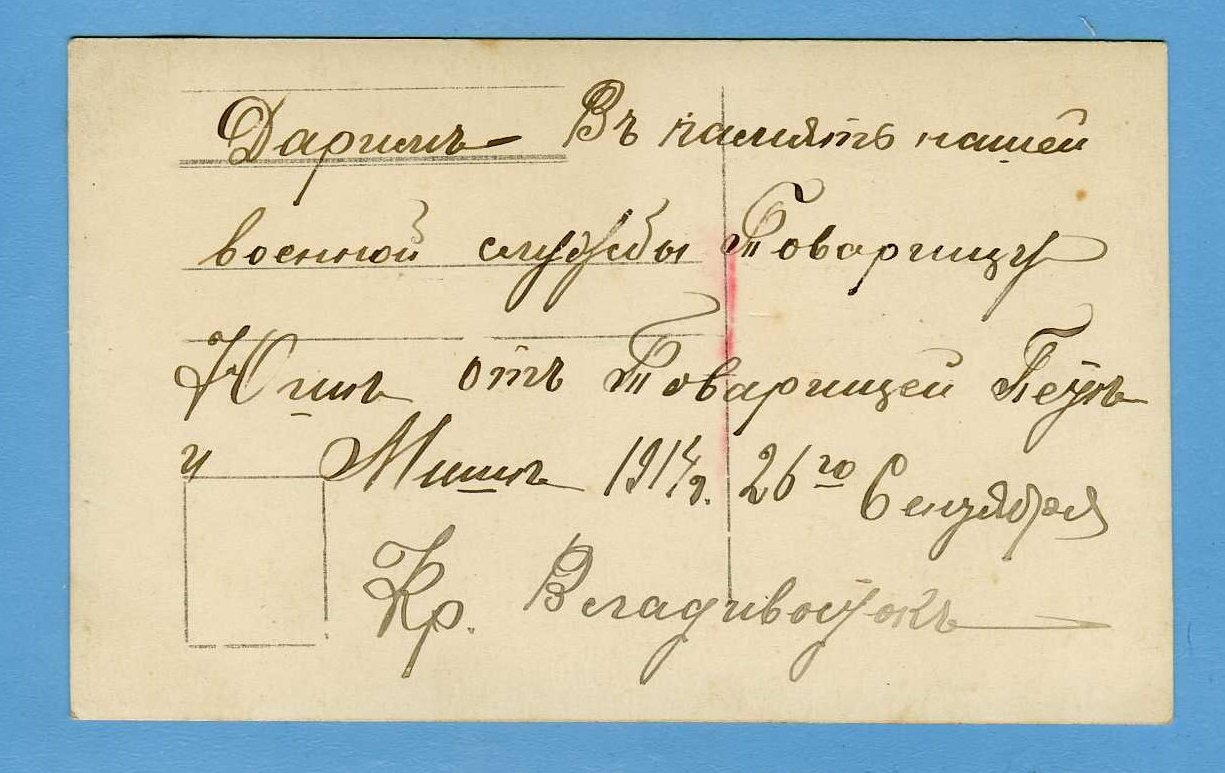 Даримъ Въ память нашей
военной службы Товарищу
отъ Товарищей
и 1914г. 26го Сентября
Кр. Владивостокъ